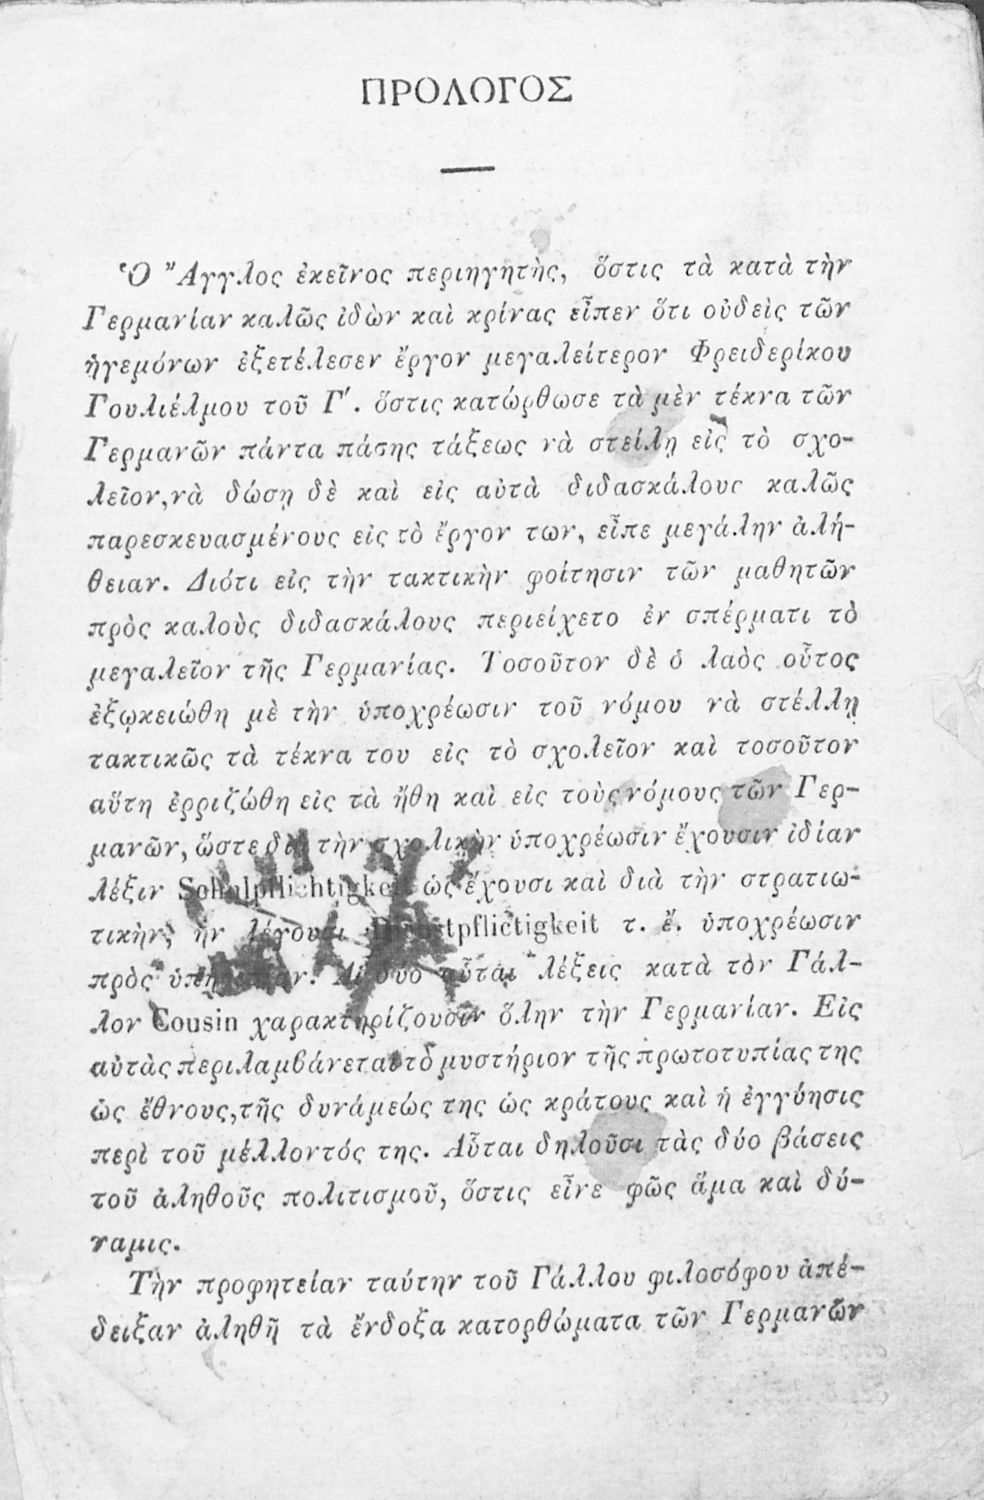 ΠΡΟΛΟΓΟΣ
Ὁ Ἄγγλος ἐκεῖνος περιηγητὴς, ὅστις τὰ κατὰ τὴν
Γερμανίαν καλῶς ἰδὼν καὶ κρίνας εἶπεν ὅτι οὐδεὶς τῶν
ἡγεμόνων ἐξετέλεσεν ἔργον μεγαλείτερον Φρειδερίκου
Γουλιέλμου τοῦ Γ′. ὅστις κατώρθωσε τὰ μὲν τέκνα τῶν
Γερμανῶν πάντα πάσης τάξεως νὰ στείλῃ εἰς τὸ σχο-
λεῖον, νὰ δώσῃ δὲ καὶ εἰς αὐτὰ διδασκάλους καλῶς
παρεσκευασμένους εἰς τὸ ἔργον των, εἶπε μεγάλην ἀλή-
θειαν. Διότι εἰς τὴν τακτικὴν φοίτησιν τῶν μαθητῶν
πρὸς καλοὺς διδασκάλους περιείχετο ἐν σπέρματι τὸ
μεγαλεῖον τῆς Γερμανίας. Τοσοῦτον δὲ ὁ λαὸς οὗτος
ἐξῳκειώθη μὲ τὴν ὑποχρέωσιν τοῦ νόμου νὰ στέλλῃ
τακτικῶς τὰ τέκνα του εἰς τὸ σχολεῖον καὶ τοσοῦτον
αὕτη ἐρριζώθη εἰς τὰ ἤθη καὶ εἰς τοὺς νόμους τῶν Γερ-
μανῶν, ὥστε διὰ τὴν σχολικὴν ὑποχρέωσιν ἔχουσιν ἰδίαν
λέξιν Schulpflichtigkeit ὡς ἔχουσι καὶ διὰ τὴν στρατιω-
τικὴν, ἣν λέγουσι Dienstpflictigkeit τ. ἔ. ὑποχρέωσιν
πρὸς ὑπηρεσίαν. Αἱ δύο αὗται λέξεις κατὰ τὸν Γάλ-
λον Cousin χαρακτηρίζουσιν ὅλην τὴν Γερμανίαν. Εἰς
αὐτὰς περιλαμβάνεται τὸ μυστήριον τῆς πρωτοτυπίας της
ὡς ἔθνους, τῆς δυνάμεώς της ὡς κράτους καὶ ἡ ἐγγύησις
περὶ τοῦ μέλλοντός της. Αὗται δηλοῦσι τὰς δύο βάσεις
τοῦ ἀληθοῦς πολιτισμοῦ, ὅστις εἶνε φῶς ἅμα καὶ δύ-
ναμις.
Τὴν προφητείαν ταύτην τοῦ Γάλλου φιλοσόφου ἀπέ-
δειξαν ἀληθῆ τὰ ἔνδοξα κατορθώματα τῶν Γερμανῶν